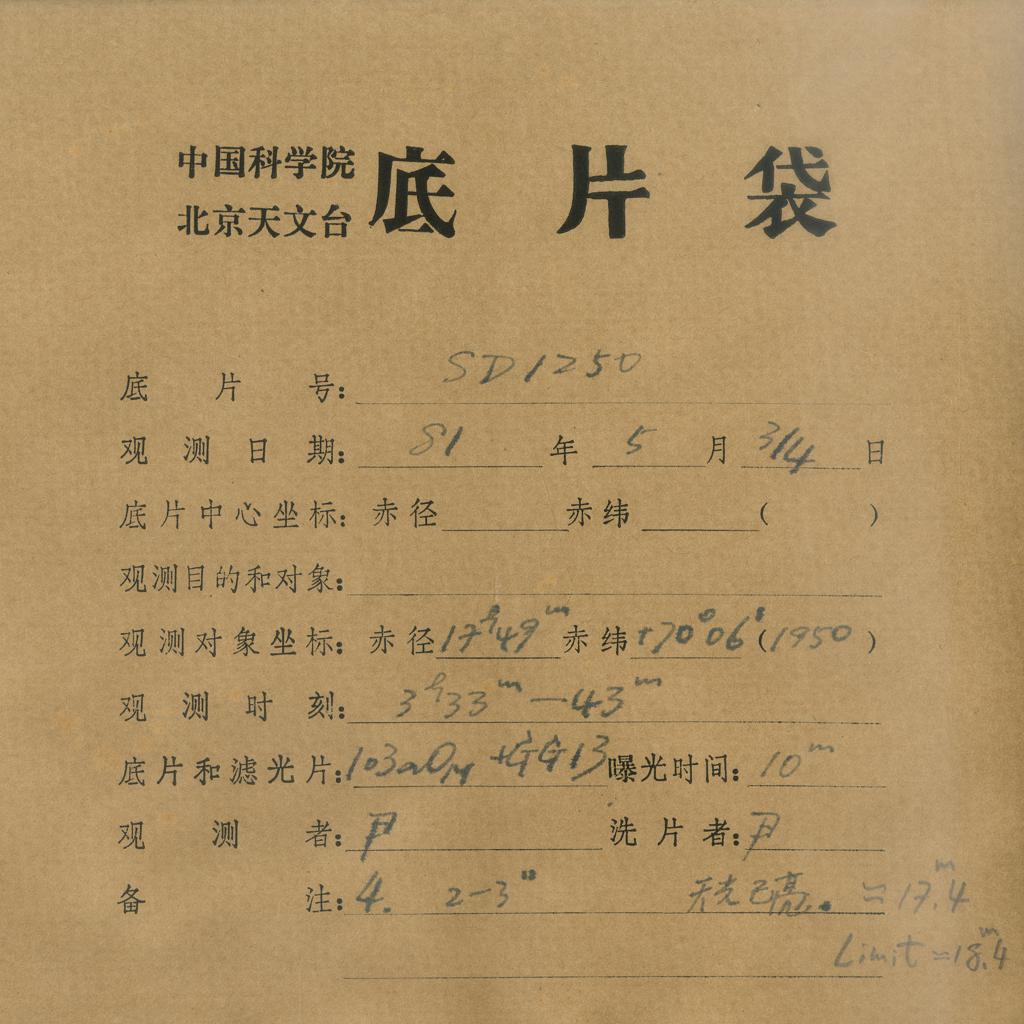 中国科学院
北京天文台
底片袋
底片号: SD1250
观测日期: 81 年 5 月 3/4 日
底片中心坐标: 赤径 赤纬 ( )
观测目的和对象:
观测对象坐标: 赤径 17ʰ49ᵐ 赤纬 +70°06′ (1950)
观测时刻: 3ʰ33ᵐ—43ᵐ
底片和滤光片: 103aO +GG13 曝光时间: 10ᵐ
观测者: 尹 洗片者: 尹
备注: 4. 2-3" 天光已亮. ≈17ᵐ.4
Limit ≈18ᵐ.4